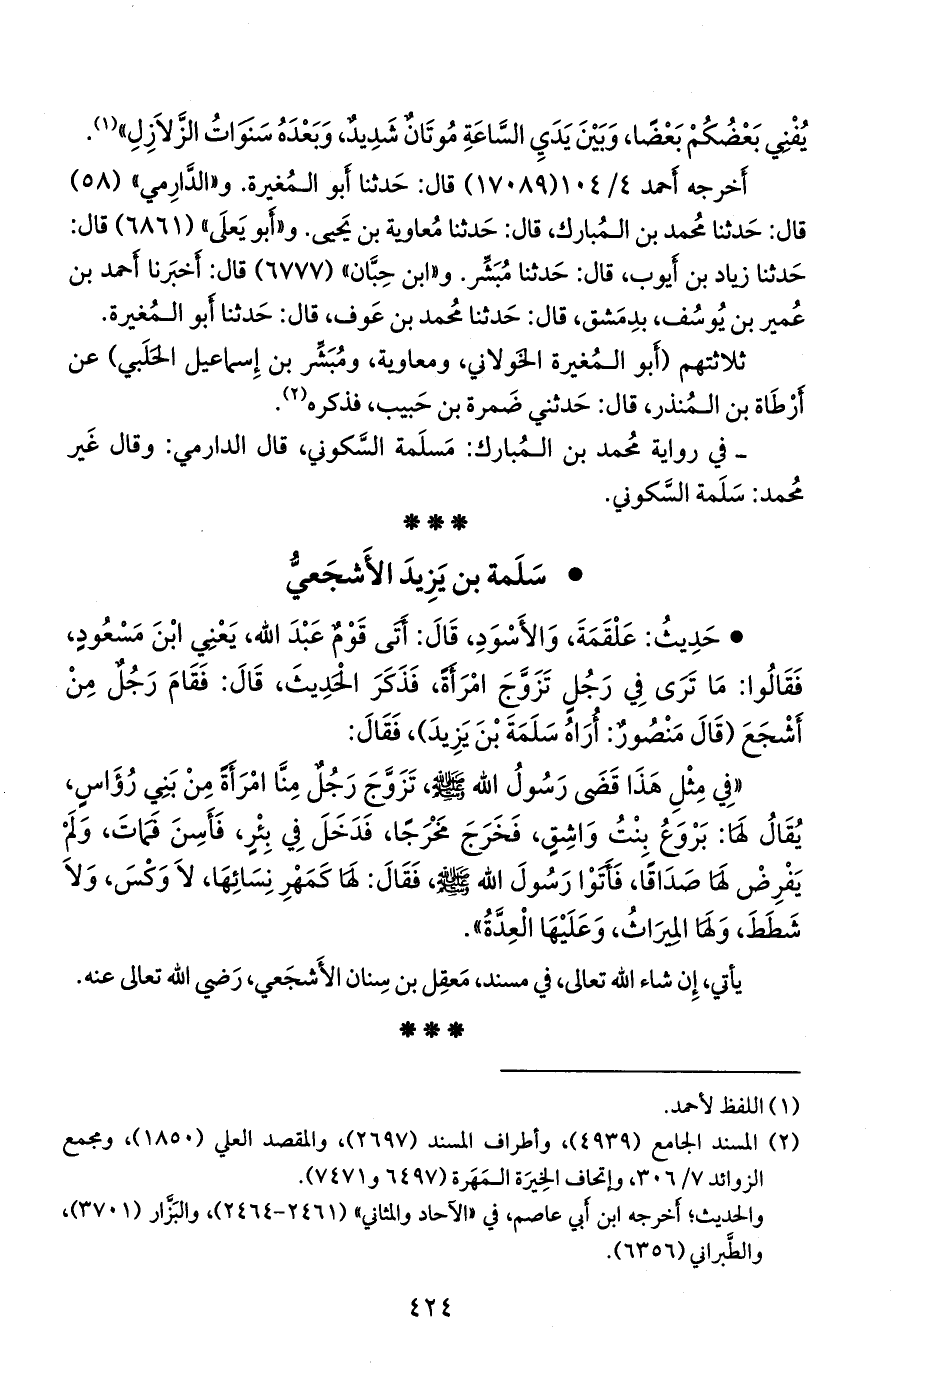 يُفْنِي بَعْضُكُمْ بَعْضًا، وَبَيْنَ يَدَيِ السَّاعَةِ مُوتَانٌ شَدِيدٌ، وَبَعْدَهُ سَنَوَاتُ الزَّلَازِلِ»(١).
أَخرجه أَحمد ٤/ ١٠٤(١٧٠٨٩) قال: حَدثنا أَبو الـمُغيرة. و«الدَّارِمي» (٥٨)
قال: حَدثنا مُحمد بن الـمُبارك، قال: حَدثنا مُعاوية بن يَحيى. و«أَبو يَعلَى» (٦٨٦١) قال:
حَدثنا زياد بن أَيوب، قال: حَدثنا مُبَشِّر. و«ابن حِبَّان» (٦٧٧٧) قال: أَخبَرنا أَحمد بن
عُمير بن يُوسُف، بدِمَشق، قال: حَدثنا مُحمد بن عَوف، قال: حَدثنا أَبو الـمُغيرة.
ثلاثتهم (أَبو الـمُغيرة الخَولاني، ومعاوية، ومُبَشِّر بن إِسماعيل الحَلَبي) عن
أَرْطَاة بن الـمُنذر، قال: حَدثني ضَمرة بن حَبيب، فذكره(٢).
ـ في رواية مُحمد بن الـمُبارك: مَسلَمة السَّكوني، قال الدارمي: وقال غَير
مُحمد: سَلَمة السَّكوني.
***
• سَلَمة بن يَزِيدَ الأَشجَعيُّ
• حَدِيثُ: عَلْقَمَةَ، وَالأَسْوَدِ، قَالَ: أَتَى قَوْمٌ عَبْدَ الله، يَعْنِي ابْنَ مَسْعُودٍ،
فَقَالُوا: مَا تَرَى فِي رَجُلٍ تَزَوَّجَ امْرَأَةً، فَذَكَرَ الْحَدِيثَ، قَالَ: فَقَامَ رَجُلٌ مِنْ
أَشْجَعَ (قَالَ مَنْصُورٌ: أُرَاهُ سَلَمَةَ بْنَ يَزِيدَ)، فَقَالَ:
«فِي مِثْلِ هَذَا قَضَى رَسُولُ الله ﷺ، تَزَوَّجَ رَجُلٌ مِنَّا امْرَأَةً مِنْ بَنِي رُؤَاسٍ،
يُقَالُ لَهَا: بَرْوَعُ بِنْتُ وَاشِقٍ، فَخَرَجَ مَخْرَجًا، فَدَخَلَ فِي بِئْرٍ، فَأَسِنَ فَمَاتَ، وَلَمْ
يَفْرِضْ لَهَا صَدَاقًا، فَأَتَوْا رَسُولَ الله ﷺ، فَقَالَ: لَهَا كَمَهْرِ نِسَائِهَا، لاَ وَكْسَ، وَلاَ
شَطَطَ، وَلَهَا الْمِيرَاثُ، وَعَلَيْهَا الْعِدَّةُ».
يأتي، إِن شاء الله تعالى، في مسند، مَعقِل بن سِنان الأَشجَعي، رَضي الله تعالى عنه.
***
(١) اللفظ لأحمد.
(٢) المسند الجامع (٤٩٣٩)، وأطراف المسند (٢٦٩٧)، والمقصد العلي (١٨٥٠)، ومجمع
الزوائد ٧/ ٣٠٦، وإتحاف الخِيرَة الـمَهَرة (٦٤٩٧ و٧٤٧١).
والحديث؛ أخرجه ابن أبي عاصم، في «الآحاد والمثاني» (٢٤٦١-٢٤٦٤)، والبَزَّار (٣٧٠١)،
والطَّبراني (٦٣٥٦).
٤٢٤